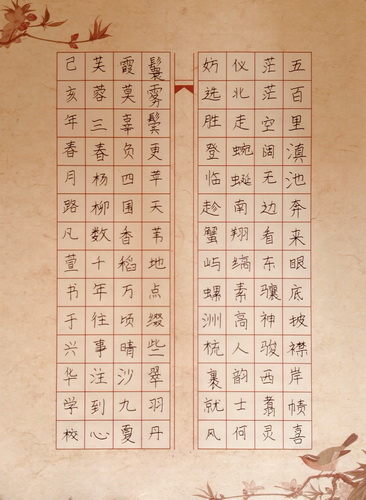 五百里滇池奔来眼底披襟岸帻喜
茫茫空阔无边看东骧神骏西翥灵
仪北走蜿蜒南翔缟素高人韵士何
妨选胜登临趁蟹屿螺洲梳裹就风
鬟雾鬓更苹天苇地点缀些翠羽丹
霞莫辜负四围香稻万顷晴沙九夏
芙蓉三春杨柳数十年往事注到心
己亥年春月路凡萱书于兴华学校